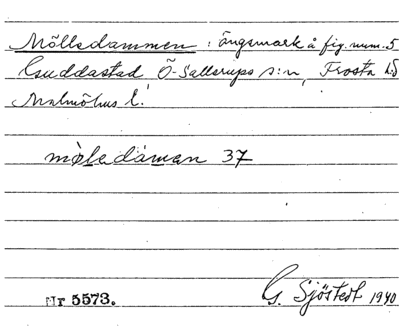 Mölledammen : ängsmark å fig. num. 5
Guddastad Ö-Sallerups s:n, Frosta hd
Malmöhus L.
möledåman 37
Nr 5573.
G. Sjöstedt 1940